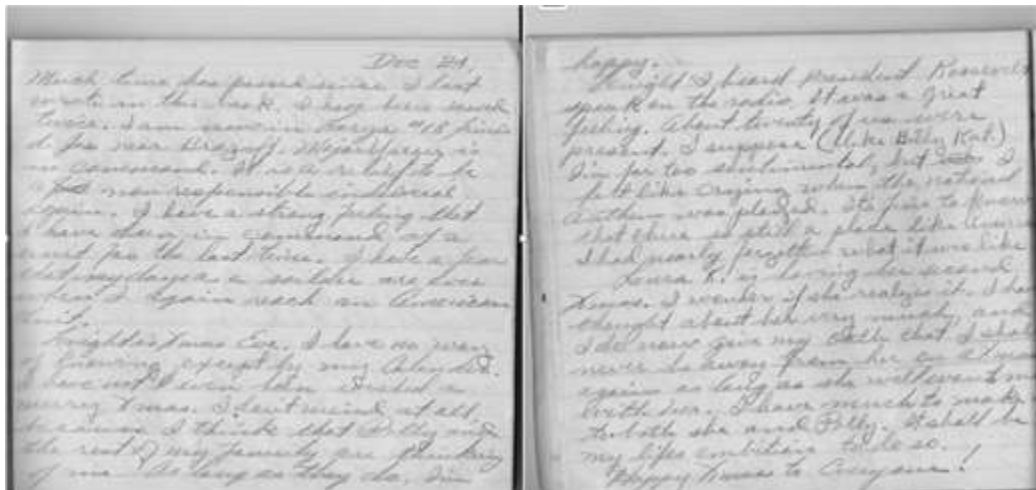 Dec 24.
Much time has passed since I last
wrote in this book. I have been moved
twice. I am now in
near Major is
in command. It is a relief to be
a man responsible
again. I have a strong feeling that
I have been in command of a
unit for the last time. I have a fear
that my days as a soldier are over
when I again reach an American
unit.
Tonight is Xmas Eve. I have no way
of knowing except by my
I have not even been wished a
merry Xmas. I don't mind at all
because I think that Polly and
the rest of my family are thinking
of me. As long as they do, I'm
happy.
Tonight I heard president Roosevelt
speak on the radio. It was a great
feeling. About twenty of us were
present. I suppose (like Billy)
I'm far too sentimental, but I
felt like crying when the national
anthem was played. It's fine to know
that there is still a place like
I had nearly forgotten what it was like.
K. is having her second
Xmas. I wonder if she realizes it. I
thought about her very much, and
I do now give my oath that I shall
never be away from her on Xmas
again as long as she will want me
with her. I have much to make
to both she and Polly. It shall be
my lifes ambition to do so.
Happy Xmas to Everyone!